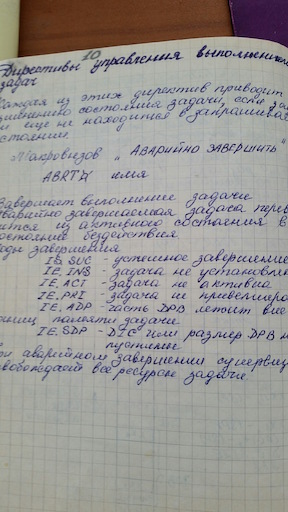 10
Директивы управления выполнением
задач
Каждая из этих директив приводит
состояния задачи, если
и еще не находится в
стоянии.
Макровызов "АВАРИЙНО ЗАВЕРШИТЬ"
ABRT¤ имя
Завершает выполнение задачи
Аварийно завершаемая задача перев
ится из активного состояния в
состояние бездействия
оды завершения
IS.SUC - успешное завершение
IE.INS - задача не установле
IE.ACT - задача не активна
IE.PRI - задача не привелигиро
IE.ADP - часть DPB лежит вне
ниц памяти задачи
IE.SDP - DIC или размер DPB н
пустимые
ри аварийном завершении суперви
вобождает все ресурсы задачи.